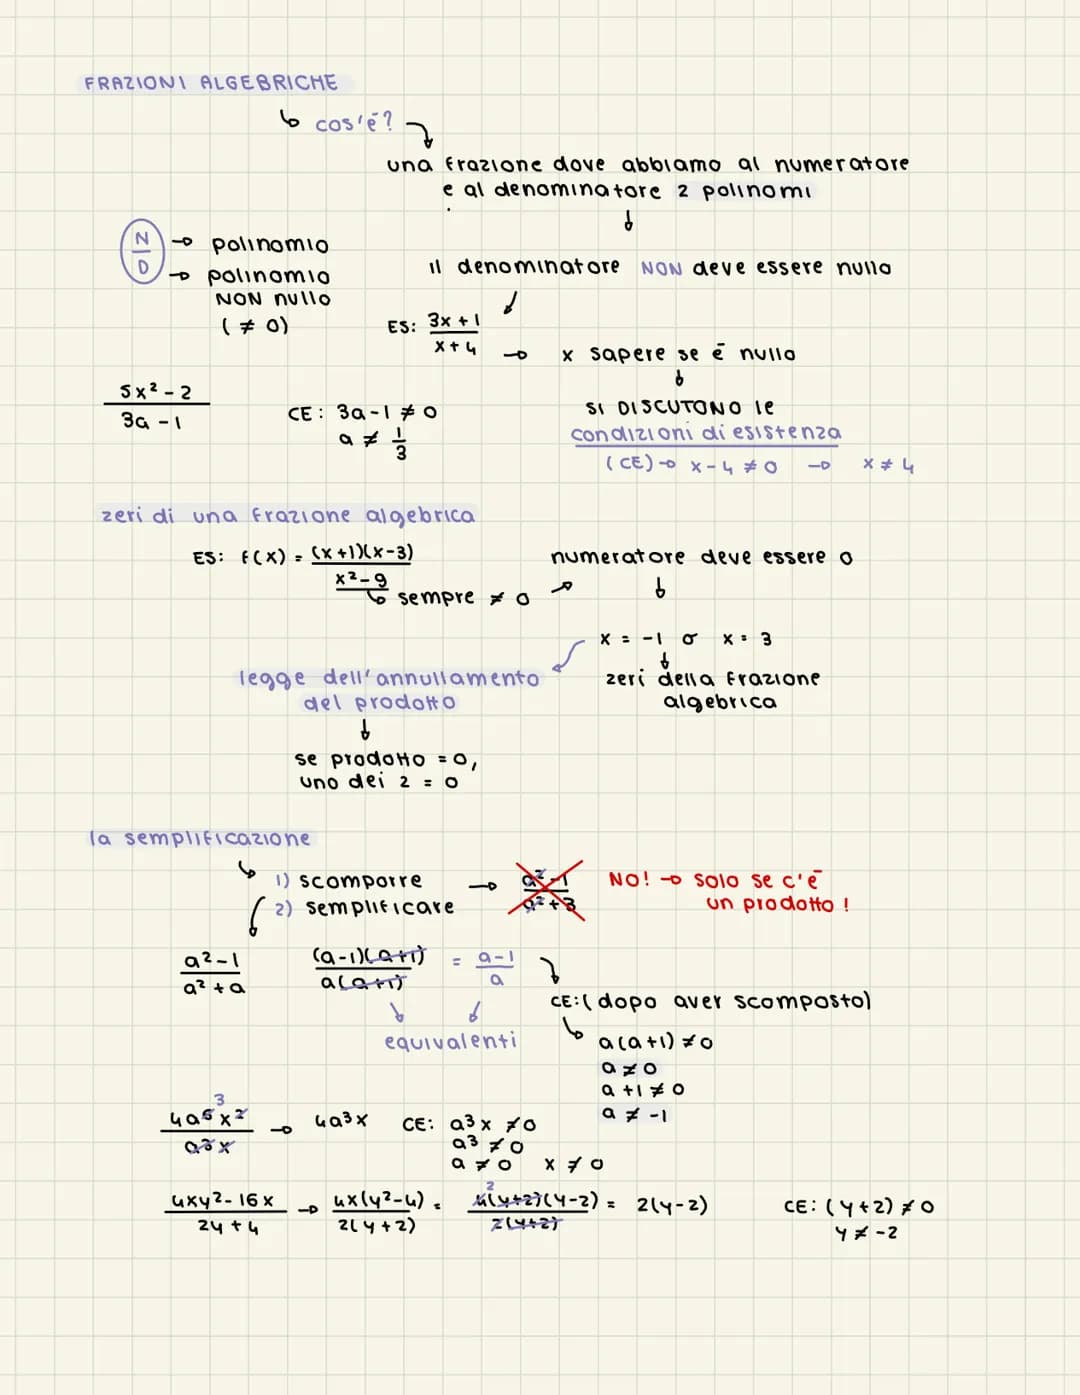 FRAZIONI ALGEBRICHE
↳ cos'è?
una frazione dove abbiamo al numeratore
e al denominatore 2 polinomi
N/D → polinomio
→ polinomio
NON nullo
(≠ 0)
il denominatore NON deve essere nullo
ES: (3x+1)/(x+4)
→ x sapere se è nullo
SI DISCUTONO le
condizioni di esistenza
(CE) → x-4 ≠ 0 → x ≠ 4
(5x²-2)/(3a-1)
CE: 3a-1 ≠ 0
a ≠ 1/3
zeri di una frazione algebrica
ES: f(x) = (x+1)(x-3)/(x²-9)
↳ sempre ≠ 0
numeratore deve essere 0
x = -1 o x = 3
zeri della frazione
algebrica
legge dell'annullamento
del prodotto
se prodotto = 0,
uno dei 2 = 0
la semplificazione
1) scomporre
2) semplificare
→ (a²-1)/(a²+3)
NO! → solo se c'è
un prodotto!
(a²-1)/(a²+a)
(a-1)(a+1)/a(a+1) = (a-1)/a
equivalenti
CE: (dopo aver scomposto)
↳ a(a+1) ≠ 0
a ≠ 0
a+1 ≠ 0
a ≠ -1
3
4a⁶x²/a³x → 4a³x
CE: a³x ≠ 0
a³ ≠ 0
a ≠ 0 x ≠ 0
(4xy²-16x)/(2y+4) → 4x(y²-4)/2(y+2) = 2 4(y+2)(y-2)/2(y+2) = 2(y-2)
CE: (y+2) ≠ 0
y ≠ -2